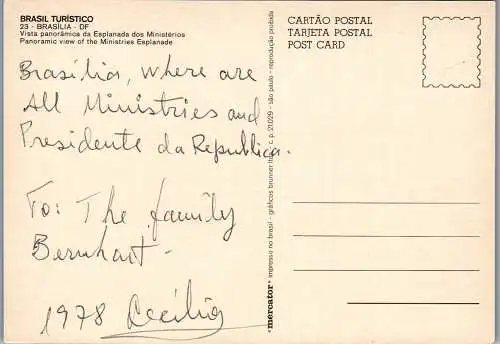 BRASIL TURÍSTICO
23 - BRASÍLIA - DF
Vista panorâmica da Esplanada dos Ministérios
Panoramic view of the Ministries Esplanade
Brasília, where are
All Ministries and
Presidente da Republica.
To: The family
Bernhart -
1978 Cecília
mercator® impresso no brasil - gráficos brunner ltda. c. p. 21029 - são paulo - reprodução proibida
CARTÃO POSTAL
TARJETA POSTAL
POST CARD